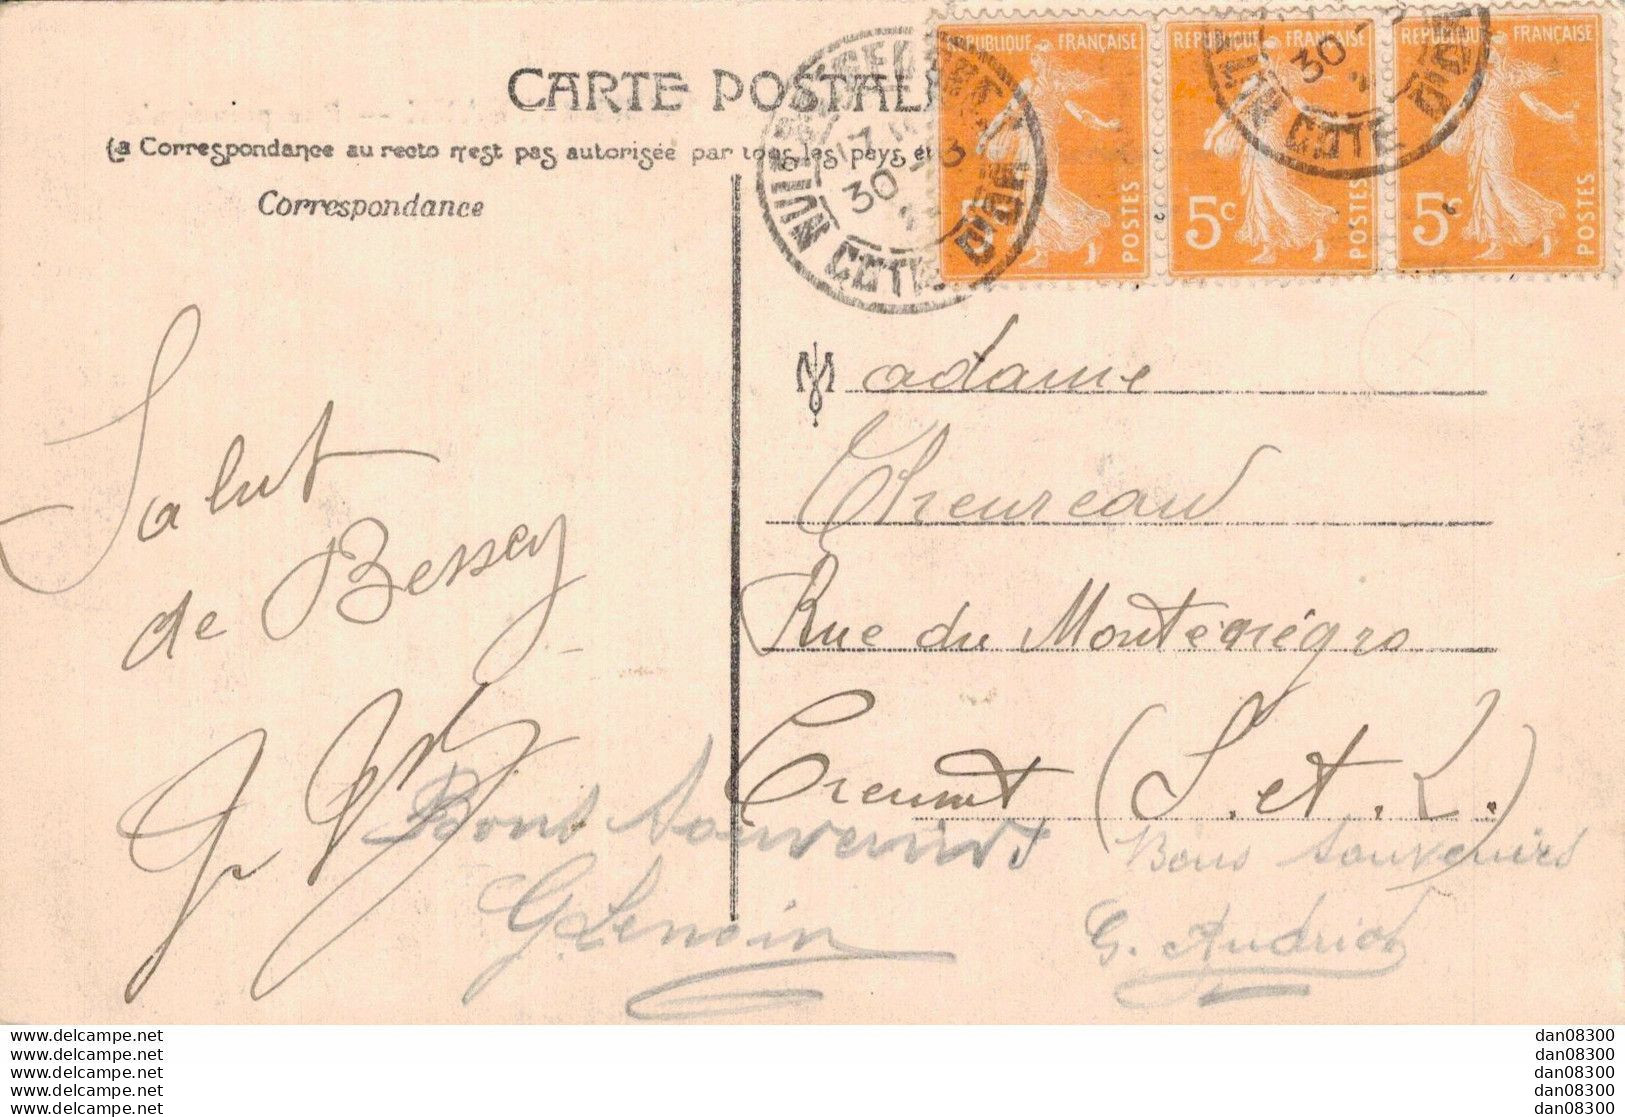 CARTE POSTALE
La Correspondance au recto n'est pas autorisée par tous les pays
Correspondance
RÉPUBLIQUE FRANÇAISE
5c
POSTES
RÉPUBLIQUE FRANÇAISE
5c
POSTES
RÉPUBLIQUE FRANÇAISE
5c
POSTES
17
30
NUITS COTE D'OR
30
NUITS COTE D'OR
Madame
Theureau
Rue du Monténégro
Creusot (S. et L.)
Salut
de Bessey
Bons Souvenirs
G. Lenoir
Bons Souvenirs
G. Audriot
www.delcampe.net
www.delcampe.net
www.delcampe.net
www.delcampe.net
www.delcampe.net
dan08300
dan08300
dan08300
dan08300
dan08300